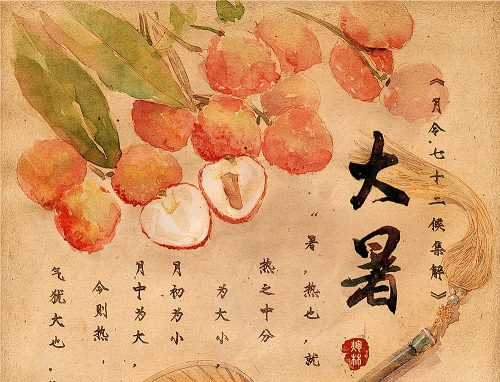 《月令七十二候集解》
大暑
“暑，热也，就
热之中分
为大小，
月初为小，
月中为大，
今则热，
气犹大也。